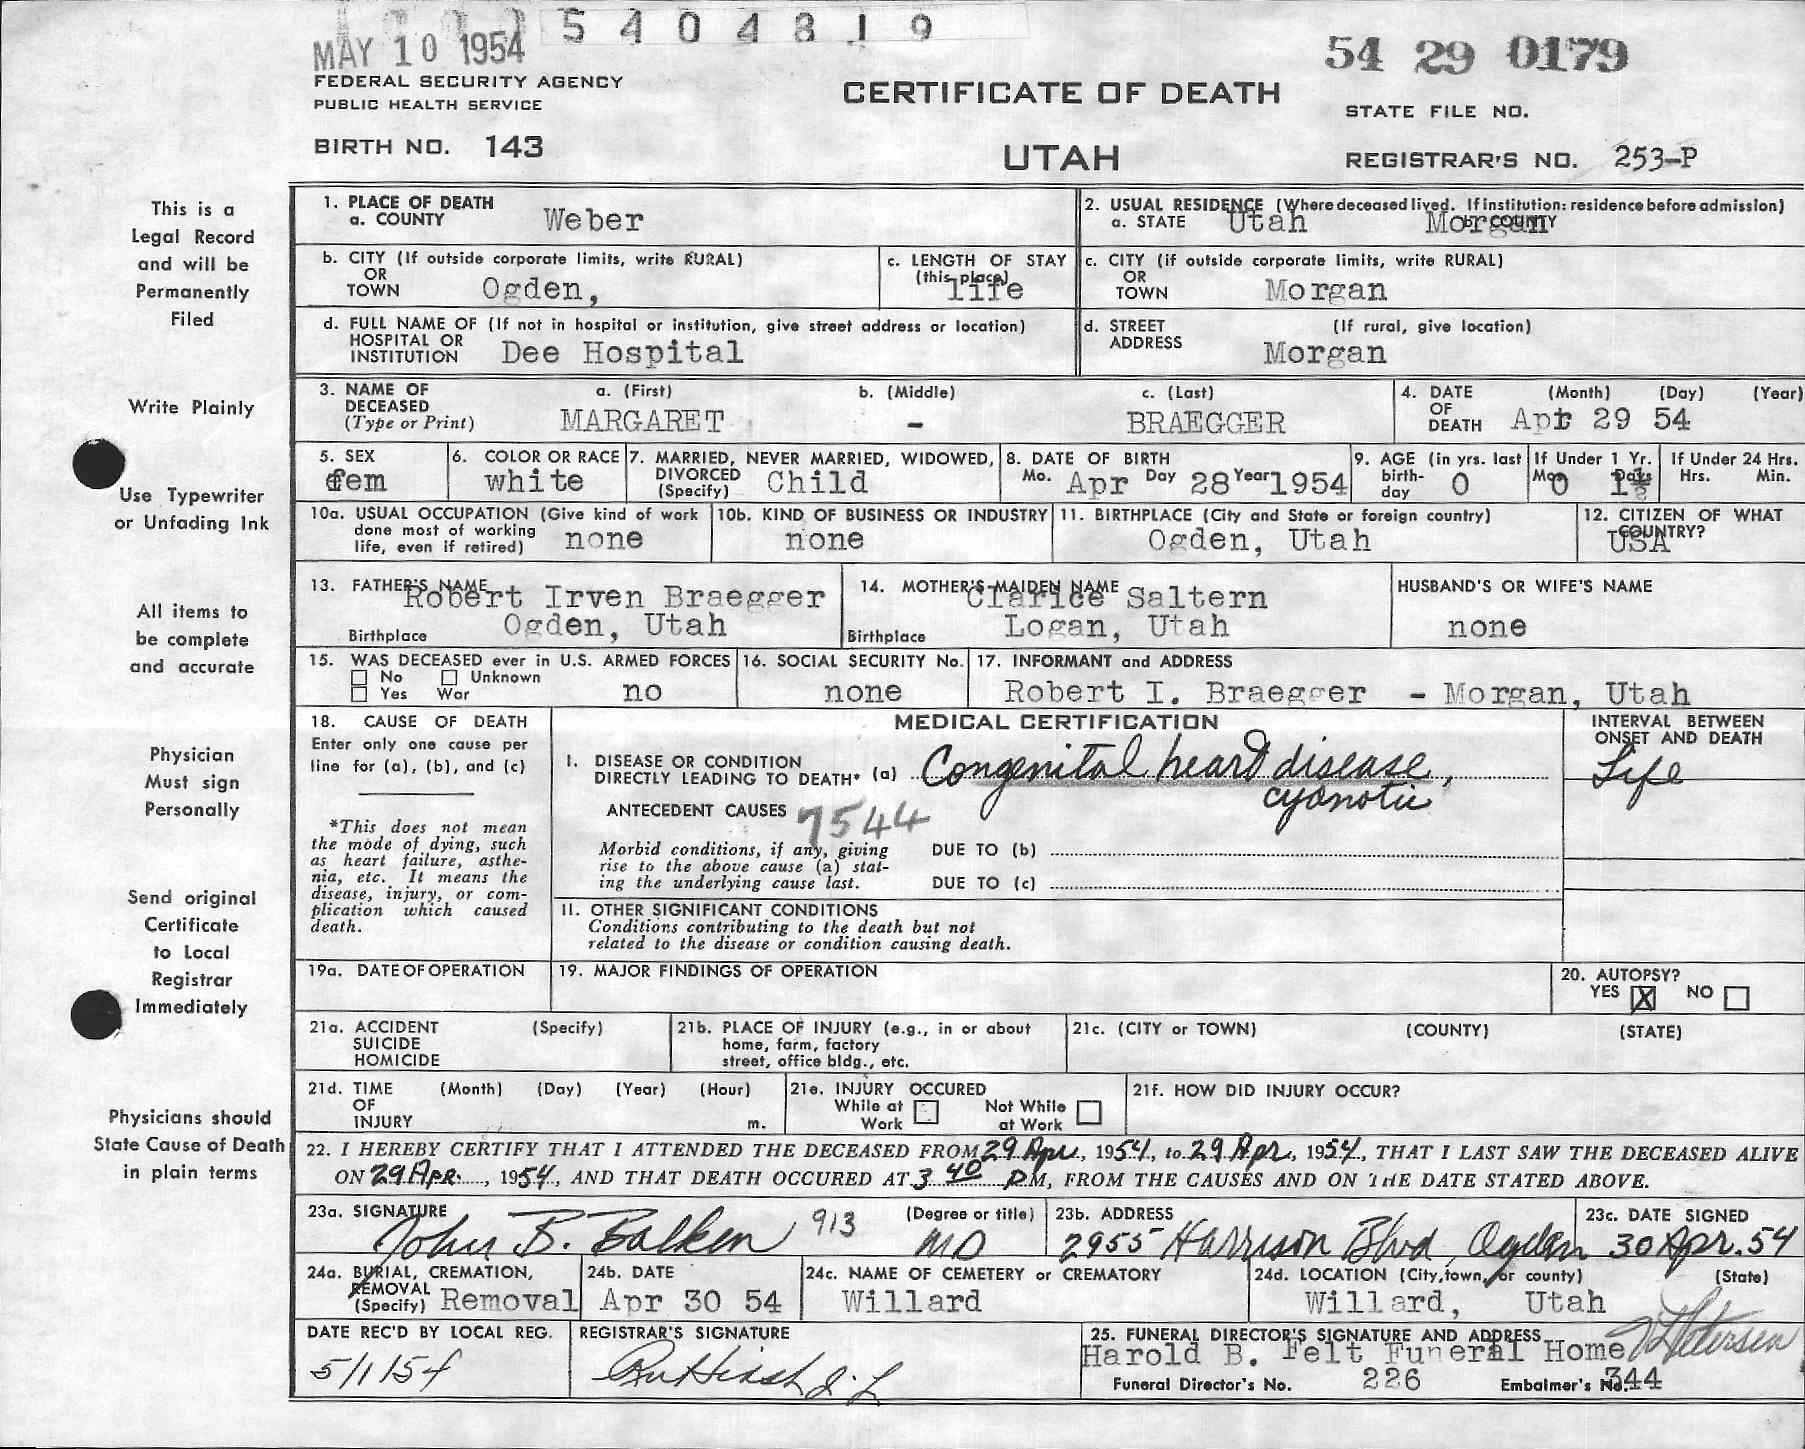 5 4 0 4 8 1 9
MAY 10 1954
54 29 0179
FEDERAL SECURITY AGENCY
PUBLIC HEALTH SERVICE
CERTIFICATE OF DEATH
STATE FILE NO.
BIRTH NO. 143
UTAH
REGISTRAR'S NO. 253-P
This is a
Legal Record
and will be
Permanently
Filed
Write Plainly
Use Typewriter
or Unfading Ink
All items to
be complete
and accurate
Physician
Must sign
Personally
Send original
Certificate
to Local
Registrar
Immediately
Physicians should
State Cause of Death
in plain terms
1. PLACE OF DEATH
a. COUNTY Weber
2. USUAL RESIDENCE (Where deceased lived. If institution: residence before admission)
a. STATE Utah b. COUNTY Morgan
b. CITY (If outside corporate limits, write RURAL)
OR
TOWN Ogden,
c. LENGTH OF STAY
(this place)
life
c. CITY (if outside corporate limits, write RURAL)
OR
TOWN Morgan
d. FULL NAME OF (If not in hospital or institution, give street address or location)
HOSPITAL OR
INSTITUTION Dee Hospital
d. STREET (If rural, give location)
ADDRESS Morgan
3. NAME OF a. (First) b. (Middle) c. (Last)
DECEASED
(Type or Print) MARGARET - BRAEGGER
4. DATE (Month) (Day) (Year)
OF
DEATH Apr 29 54
5. SEX
fem
6. COLOR OR RACE
white
7. MARRIED, NEVER MARRIED, WIDOWED,
DIVORCED
(Specify) Child
8. DATE OF BIRTH
Mo. Apr Day 28 Year 1954
9. AGE (in yrs. last
birth-
day 0
If Under 1 Yr.
Mos. 0 Days 1½
If Under 24 Hrs.
Hrs. Min.
10a. USUAL OCCUPATION (Give kind of work
done most of working
life, even if retired) none
10b. KIND OF BUSINESS OR INDUSTRY
none
11. BIRTHPLACE (City and State or foreign country)
Ogden, Utah
12. CITIZEN OF WHAT
COUNTRY?
USA
13. FATHER'S NAME
Robert Irven Braegger
Birthplace Ogden, Utah
14. MOTHER'S MAIDEN NAME
Clarice Saltern
Birthplace Logan, Utah
HUSBAND'S OR WIFE'S NAME
none
15. WAS DECEASED ever in U.S. ARMED FORCES
No Unknown
Yes War no
16. SOCIAL SECURITY No.
none
17. INFORMANT and ADDRESS
Robert I. Braegger - Morgan, Utah
18. CAUSE OF DEATH
Enter only one cause per
line for (a), (b), and (c)
*This does not mean
the mode of dying, such
as heart failure, asthe-
nia, etc. It means the
disease, injury, or com-
plication which caused
death.
MEDICAL CERTIFICATION
INTERVAL BETWEEN
ONSET AND DEATH
I. DISEASE OR CONDITION
DIRECTLY LEADING TO DEATH* (a) Congenital heart disease,
cyanotic
Life
ANTECEDENT CAUSES 7544
Morbid conditions, if any, giving
rise to the above cause (a) stat-
ing the underlying cause last.
DUE TO (b)
DUE TO (c)
II. OTHER SIGNIFICANT CONDITIONS
Conditions contributing to the death but not
related to the disease or condition causing death.
19a. DATE OF OPERATION
19. MAJOR FINDINGS OF OPERATION
20. AUTOPSY?
YES X NO
21a. ACCIDENT (Specify)
SUICIDE
HOMICIDE
21b. PLACE OF INJURY (e.g., in or about
home, farm, factory
street, office bldg., etc.
21c. (CITY or TOWN) (COUNTY) (STATE)
21d. TIME (Month) (Day) (Year) (Hour)
OF
INJURY m.
21e. INJURY OCCURED
While at Work Not While at Work
21f. HOW DID INJURY OCCUR?
22. I HEREBY CERTIFY THAT I ATTENDED THE DECEASED FROM 29 Apr., 1954, to 29 Apr, 1954, THAT I LAST SAW THE DECEASED ALIVE
ON 29 Apr., 1954, AND THAT DEATH OCCURED AT 3 40 P.M, FROM THE CAUSES AND ON THE DATE STATED ABOVE.
23a. SIGNATURE (Degree or title)
John B. Balken 913 MD
23b. ADDRESS
2955 Harrison Blvd, Ogden
23c. DATE SIGNED
30 Apr. 54
24a. BURIAL, CREMATION,
REMOVAL
(Specify) Removal
24b. DATE
Apr 30 54
24c. NAME OF CEMETERY or CREMATORY
Willard
24d. LOCATION (City, town, or county) (State)
Willard, Utah
DATE REC'D BY LOCAL REG.
5/1/54
REGISTRAR'S SIGNATURE
25. FUNERAL DIRECTOR'S SIGNATURE AND ADDRESS
Harold B. Felt Funeral Home
Petersen
Funeral Director's No. 226 Embalmer's No. 344